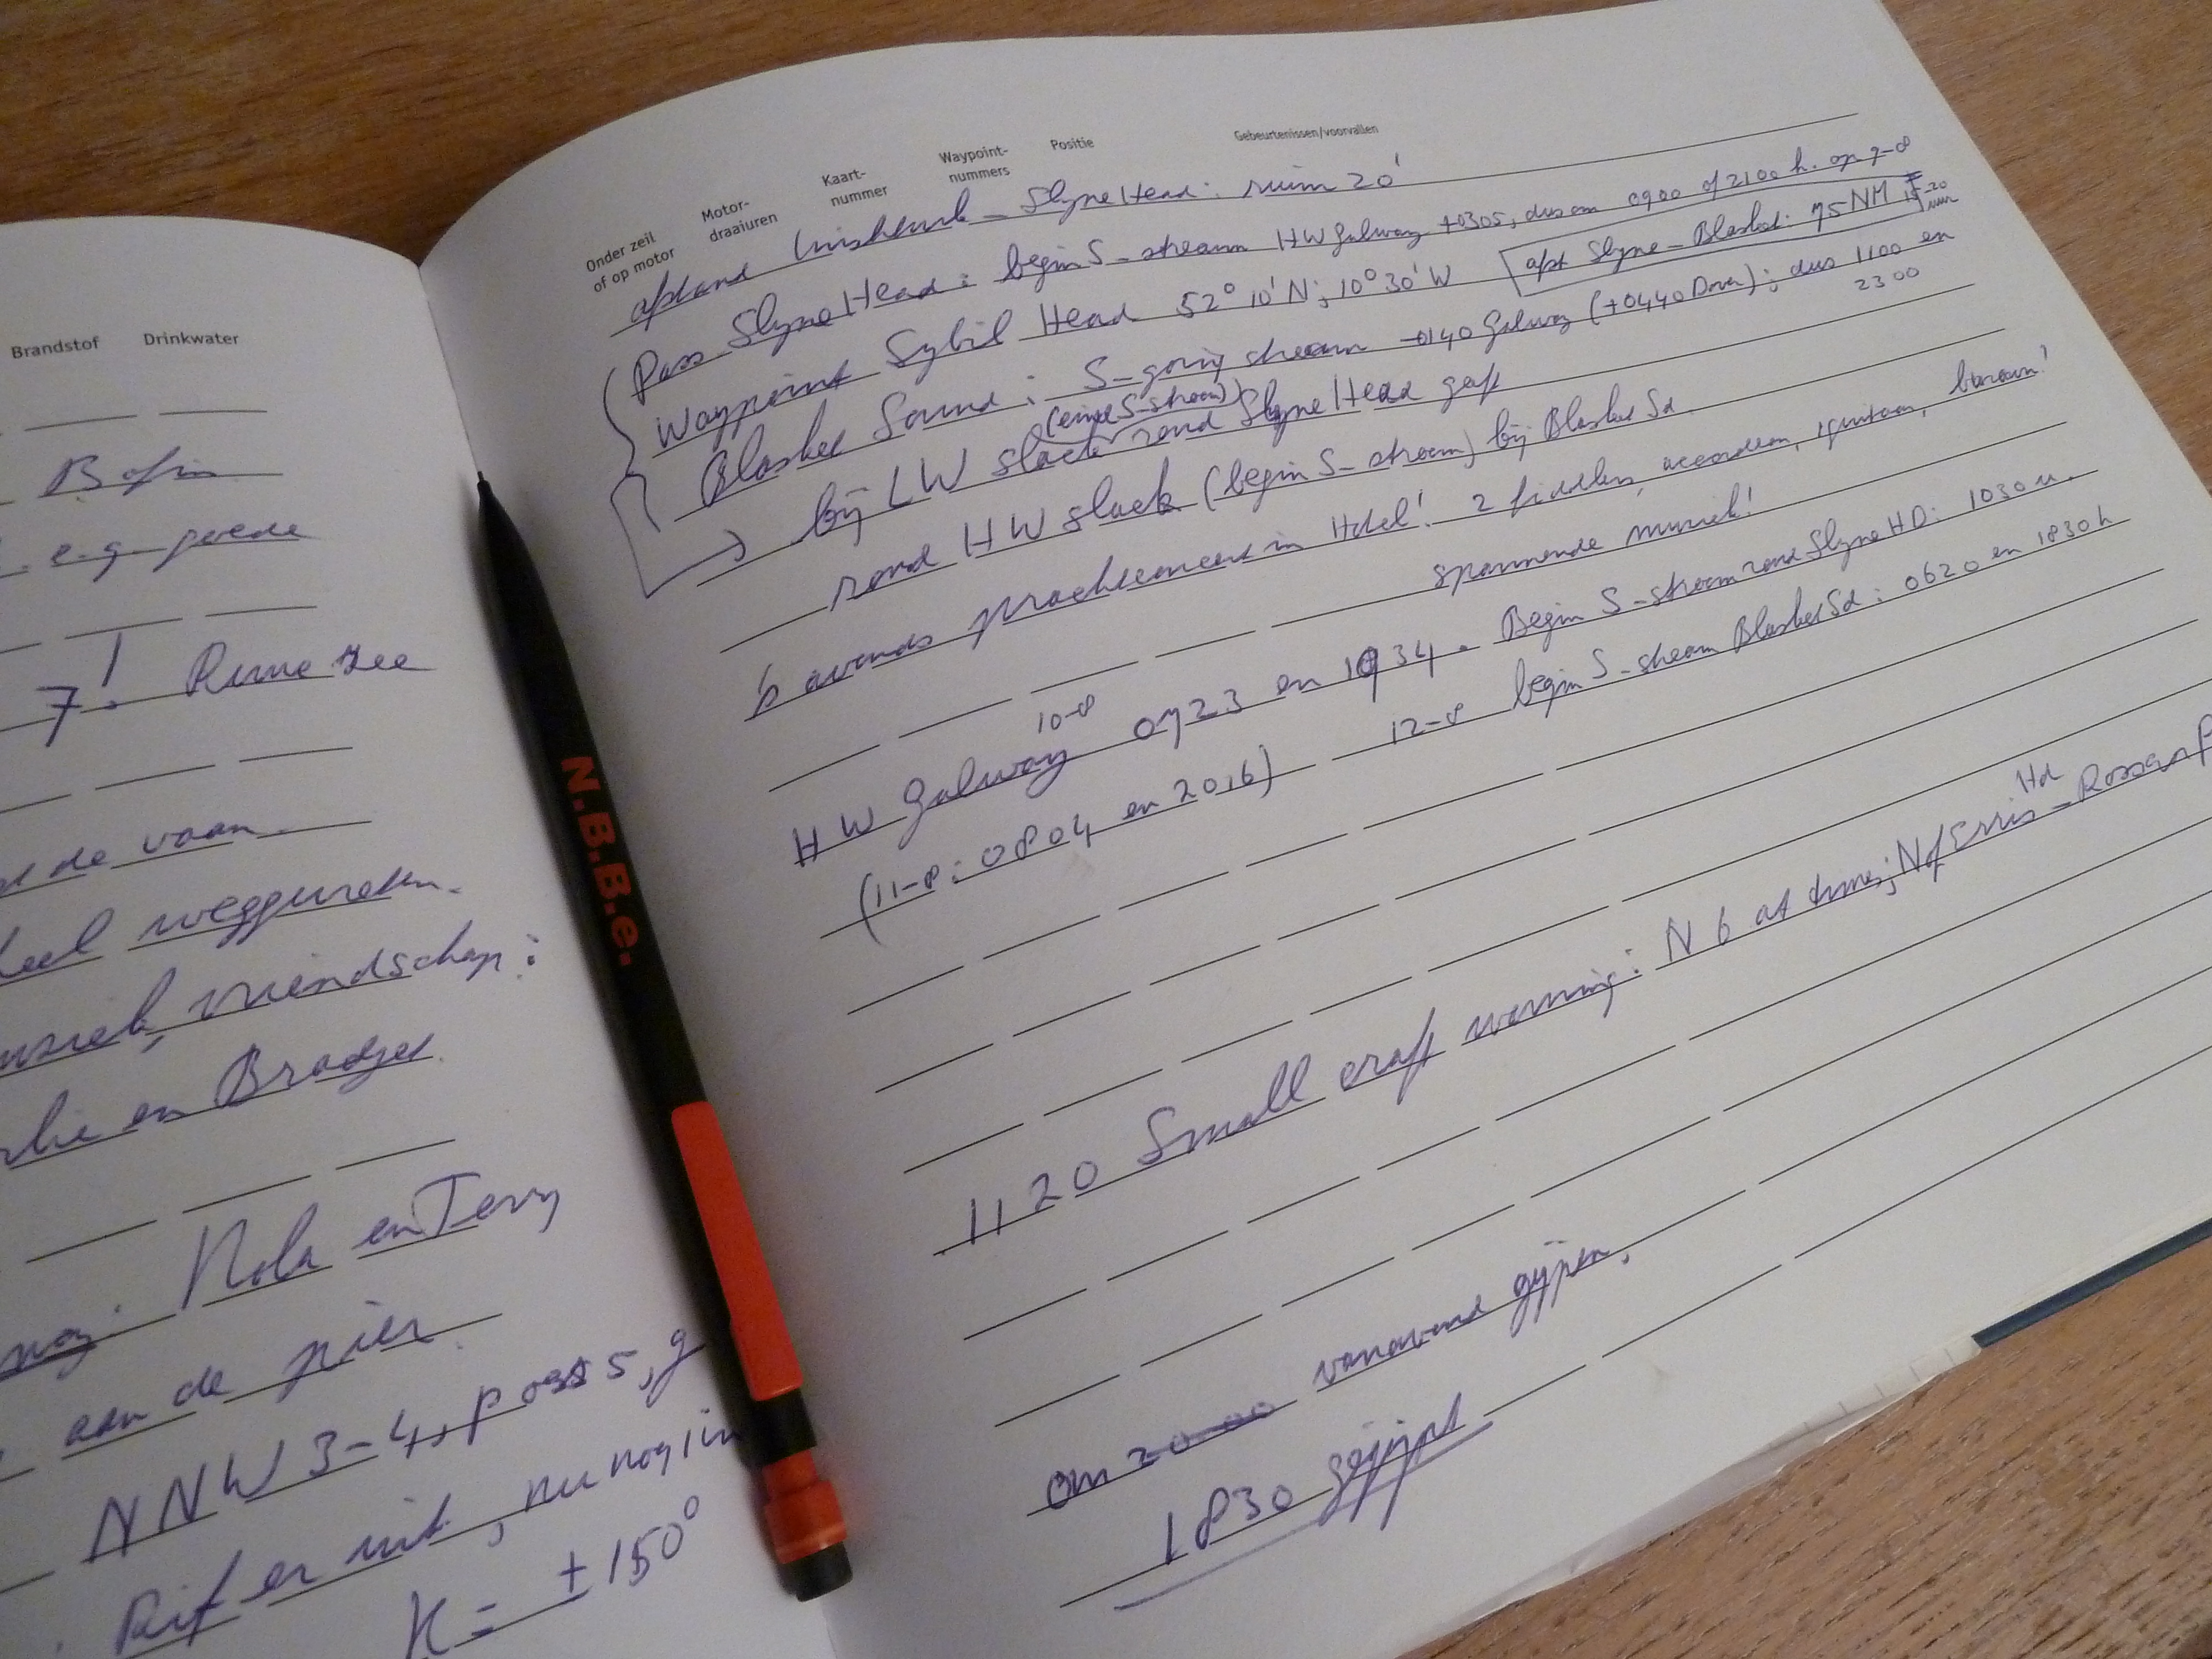 Brandstof Drinkwater
Bofin
e.g. goede
7! Ruime zee
de vaan.
heel weggereten.
muziek, vriendschap:
en Bradget.
Nola en Terry
aan de pier.
NNW 3-4, poss 5, g
Rif er uit, nu nog 1 in
K = ± 150°
N.B.B.e.
Onder zeil of op motor
Motor-draaiuren
Kaart-nummer
Waypoint-nummers
Positie
Gebeurtenissen/voorvallen
afstand Inishturk - Slyne Head: ruim 20'
Pass Slyne Head: begin S-stream HW Galway +0305, dus om 0900 of 2100 h. op 7-8
Waypoint Sybil Head 52° 10' N; 10° 30' W afst Slyne - Blasket: 75 NM 15-20 uur
Blasket Sound: S-going stream -0140 Galway (+0440 Dover); dus 1100 en 2300
→ bij LW slack (einde S-stroom) rond Slyne Head geeft
rond HW slack (begin S-stroom) bij Blasket Sd.
's avonds prachtconcert in Hotel! 2 fiddlers, accordeon, guitaar,
spannende muziek!
HW Galway 10-8 0723 en 1934. Begin S-stroom rond Slyne HD: 1030 u.
(11-8: 0804 en 2016) 12-8 begin S-stream Blasket Sd: 0620 en 1830 h
1120 Small craft warning: N 6 at times; N of Erris Hd - Rossan P
om 20.00 vanavond gijpen.
1830 gegijpt